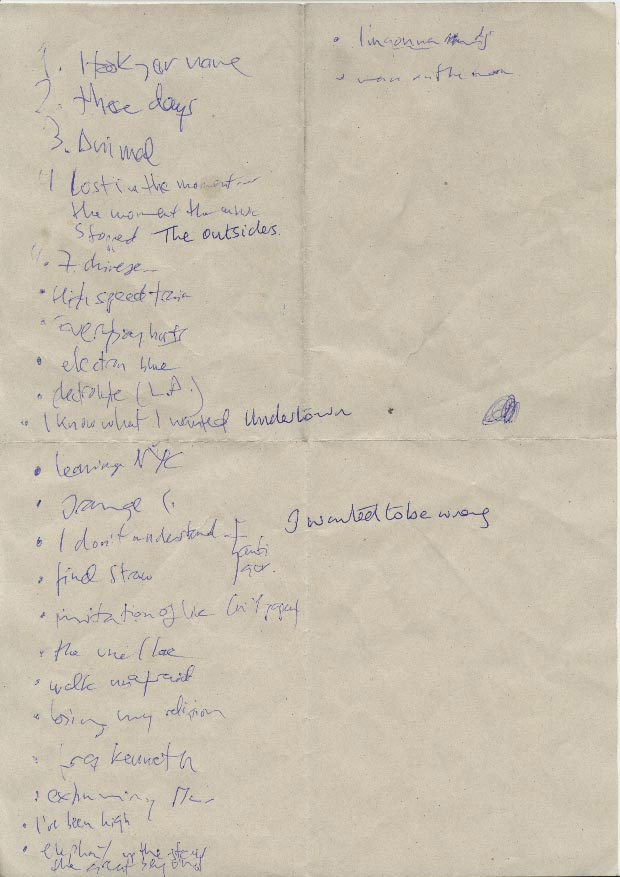 1. I took your name
2. these days
3. Animal
4 Lost in the moment...
the moment the music
stopped The outsides.
7. chinese...
High speed train
everybody hurts
electron blue
electrolyte (L.A.)
I know what I wanted Undertown
leaving NYC
Orange C.
I don't understand
final straw
imitation of life
the one I love
walk unafraid
losing my religion
kenneth
exhuming Mc
I've been high
the great beyond
I wanted to be wrong
man on the moon